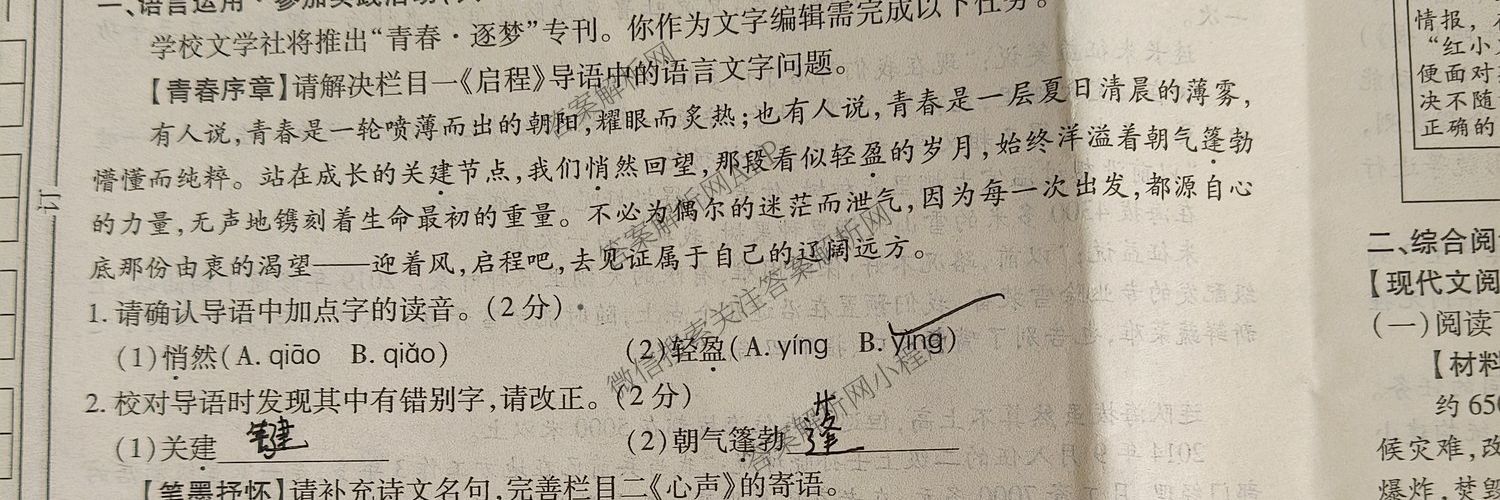 一、语言运用·参加实践活动
学校文学社将推出“青春·逐梦”专刊。你作为文字编辑需完成以下任务。
【青春序章】请解决栏目一《启程》导语中的语言文字问题。
有人说，青春是一轮喷薄而出的朝阳，耀眼而炙热；也有人说，青春是一层夏日清晨的薄雾，
懵懂而纯粹。站在成长的关建节点，我们悄然回望，那段看似轻盈的岁月，始终洋溢着朝气篷勃
的力量，无声地镌刻着生命最初的重量。不必为偶尔的迷茫而泄气，因为每一次出发，都源自心
底那份由衷的渴望——迎着风，启程吧，去见证属于自己的辽阔远方。
1. 请确认导语中加点字的读音。（2分）
（1）悄然（A. qiāo B. qiǎo） （2）轻盈（A. yíng B. yǐng）
2. 校对导语时发现其中有错别字，请改正。（2分）
（1）关建 键 （2）朝气篷勃 蓬
【笔墨抒怀】请补充诗文名句，完善栏目二《心声》的寄语。
订
情报，
“红小
便面对
决不随
正确的
二、综合阅
【现代文阅
（一）阅读
【材料
约650
候灾难，改
爆炸，梦
答案解析网
答案解析网APP
微信搜索关注答案解析网
答案解析网小程序